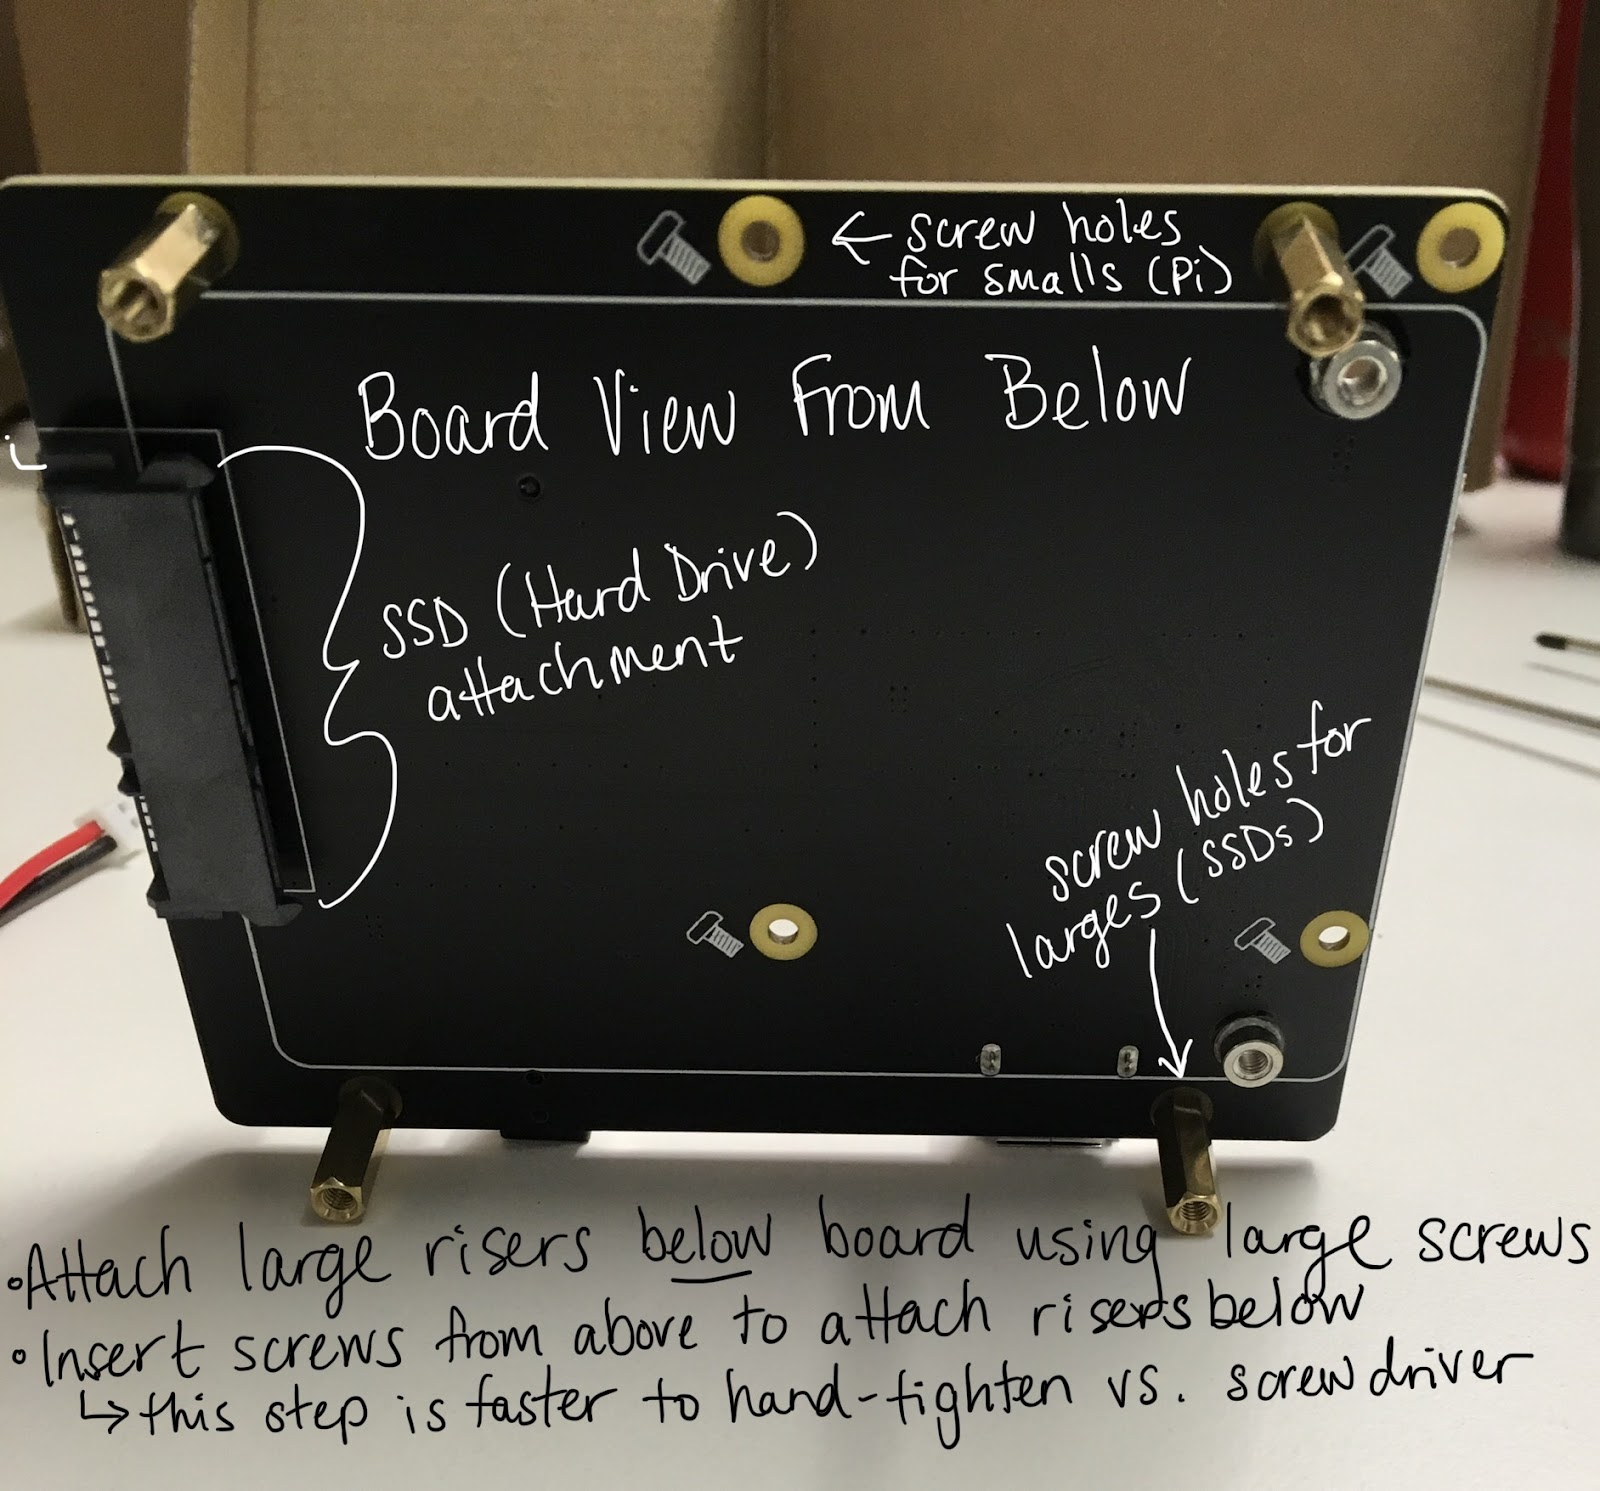 ← screw holes
for smalls (Pi)
Board View From Below
SSD (Hard Drive)
attachment
screw holes for
larges (SSDs)
•Attach large risers below board using large screws
•Insert screws from above to attach risers below
↳ this step is faster to hand-tighten vs. screwdriver